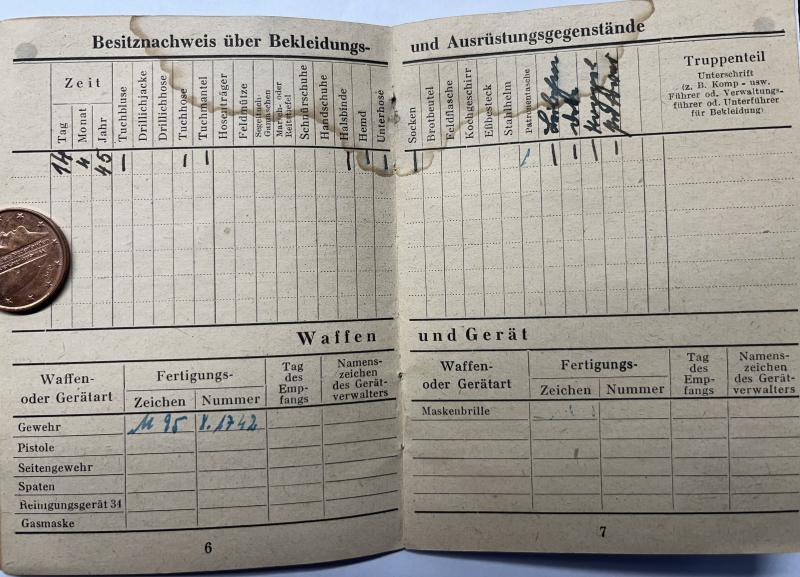 Besitznachweis über Bekleidungs-
und Ausrüstungsgegenstände
Zeit
Tag
Monat
Jahr
Tuchbluse
Drillichjacke
Drillichhose
Tuchhose
Tuchmantel
Hosenträger
Feldmütze
Segeltuch-
Gamaschen
Marsch- oder
Reitstiefel
Schnürschuhe
Handschuhe
Halsbinde
Hemd
Unterhose
Socken
Brotbeutel
Feldflasche
Kochgeschirr
Eßbesteck
Stahlhelm
Patronentasche
Truppenteil
Unterschrift
(z. B. Komp - usw.
Führer od. Verwaltungs-
führer od. Unterführer
für Bekleidung)
14 4 45 – – – – – – –
– – – –
Waffen
und Gerät
Waffen-
oder Gerätart
Fertigungs-
Zeichen
Nummer
Tag
des
Emp-
fangs
Namens-
zeichen
des Gerät-
verwalters
Gewehr M 95 X. 1742
Pistole
Seitengewehr
Spaten
Reinigungsgerät 34
Gasmaske
6
Waffen-
oder Gerätart
Fertigungs-
Zeichen
Nummer
Tag
des
Emp-
fangs
Namens-
zeichen
des Gerät-
verwalters
Maskenbrille
7